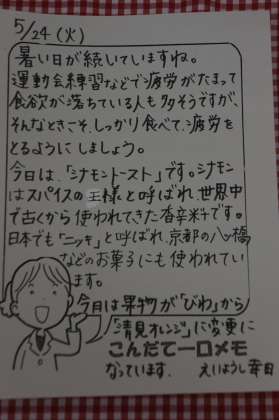 5/24(火)
暑い日が続いていますね。
運動会練習などで疲労がたまって
食欲が落ちている人も多そうですが、
そんなときこそ、しっかり食べて、疲労を
とるようにしましょう。
今日は、「シナモントースト」です。シナモン
はスパイスの王様と呼ばれ、世界中
で古くから使われてきた香辛料です。
日本でも「ニッキ」と呼ばれ、京都の八ッ橋
などのお菓子にも使われてい
ます。
今日は果物が「びわ」から
「清見オレンジ」に変更に
こんだて一口メモ
なっています。 えいようし 幸日